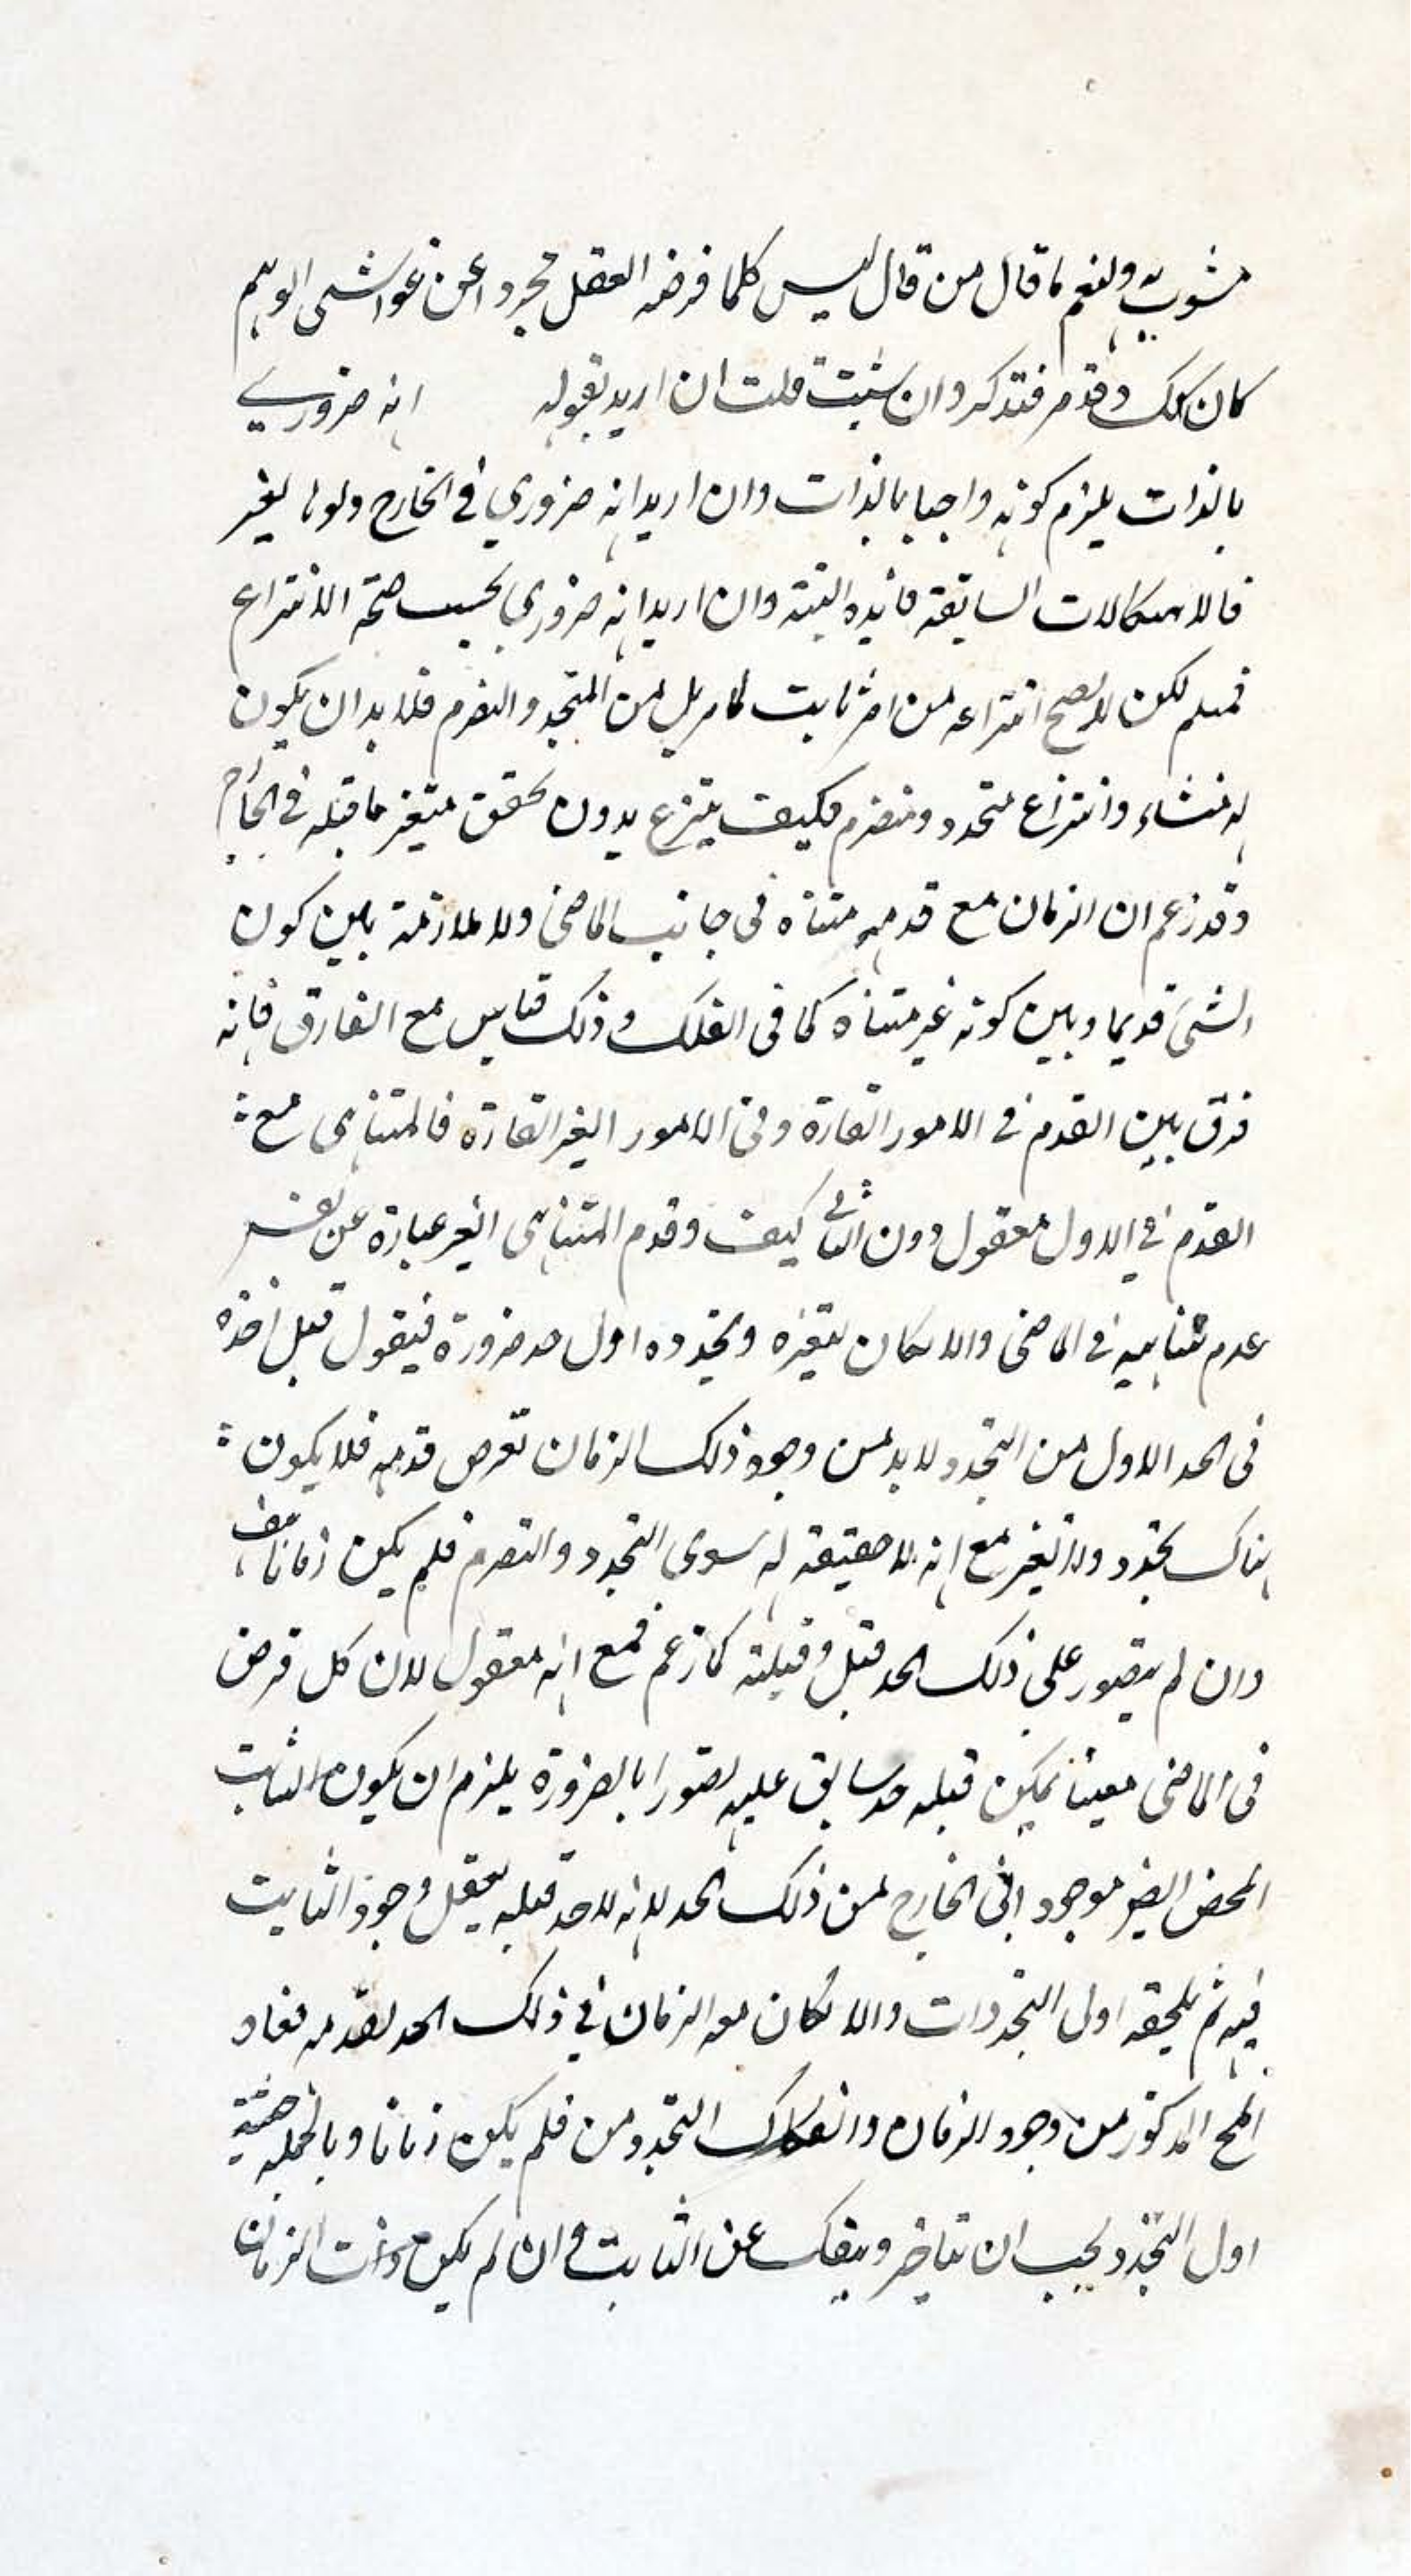 مشوب به ولنعم ما قال من قال ليس كلما فرضه العقل مجردا عن غواشى الوهم
كان كك وقد مر فتذكر وان شئت قلت ان اريد بقوله انه ضروري
بالذات يلزم كونه واجبا بالذات وان اريد انه ضروري في الخارج ولو بالغير
فالاشكالات السابقة عائدة البتة وان اريد انه ضروري بحسب صحة الانتزاع
فمسلم لكن لا يصح انتزاعه من امر ثابت كما مر بل من المتجدد والتصرم فلا بد ان يكون
له منشاء وانتزاع متجدد ومتصرم فكيف ينتزع بدون تحقق متغير ما قبله في الخارج
وقد زعم ان الزمان مع قدمه متناه فى جانب الماضى ولا ملازمة بين كون
الشئ قديما وبين كونه غير متناه كما فى الفلك وذلك قياس مع الفارق فانه
فرق بين القدم في الامور القارة وفى الامور الغير القارة فالمتناهى مع
القدم في الاول معقول دون الثانى كيف وقدم المتناهى الغير عبارة عن نفس
عدم تناهيه في الماضى والا لكان لتغيره وتجدده اول حد ضرورة فيقول قبل اخذه
فى الحد الاول من التجدد لا بد من وجود ذلك الزمان بفرض قدمه فلا يكون
هناك تجدد ولا تغير مع انه لا حقيقة له سوى التجدد والتصرم فلم يكن زمانا هف
وان لم يتصور على ذلك الحد قبل وقبلية كما زعم فمع انه معقول لان كل فرض
فى الماضى معينا يمكن قبله حد سابق عليه تصورا بالضرورة يلزم ان يكون الثابت
المحض ايضا موجودا فى الخارج من ذلك الحد لانه لا حد قبله يعقل وجود الثابت
فيه ثم يلحقه اولى التجددات والا لكان معه الزمان في ذلك الحد لقدمه فعاد
المح المذكور من وجود الزمان وانفكاك التجدد من فلم يكن زمانا وبالجملة حينئذ
اول التجدد يجب ان يتاخر وينفك عن الثابت وان لم يكن ذات الزمان